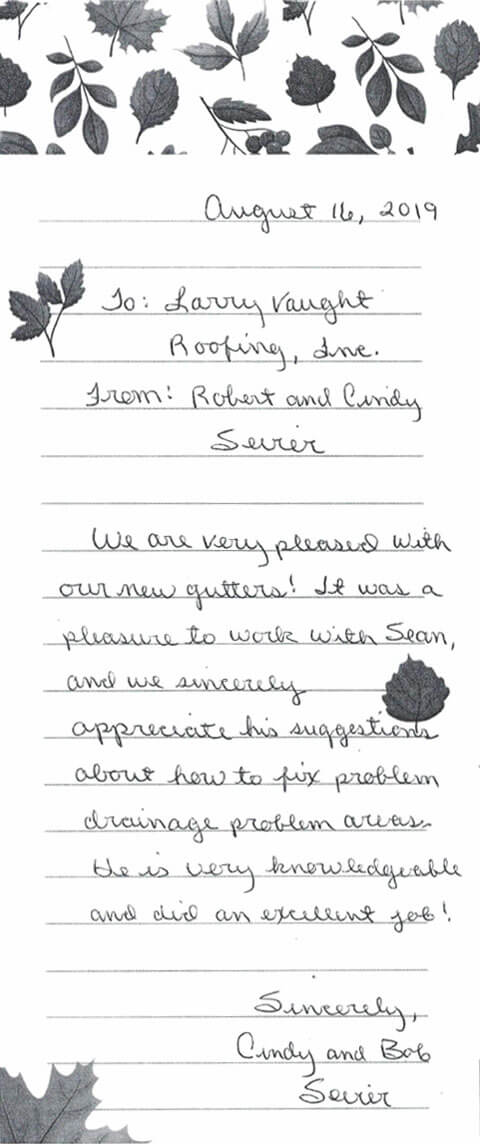 August 16, 2019
To: Larry Vaught
Roofing, Inc.
From: Robert and Cindy
Sevier
We are very pleased with
our new gutters! It was a
pleasure to work with Sean,
and we sincerely
appreciate his suggestions
about how to fix problem
drainage problem areas.
He is very knowledgeable
and did an excellent job!
Sincerely,
Cindy and Bob
Sevier